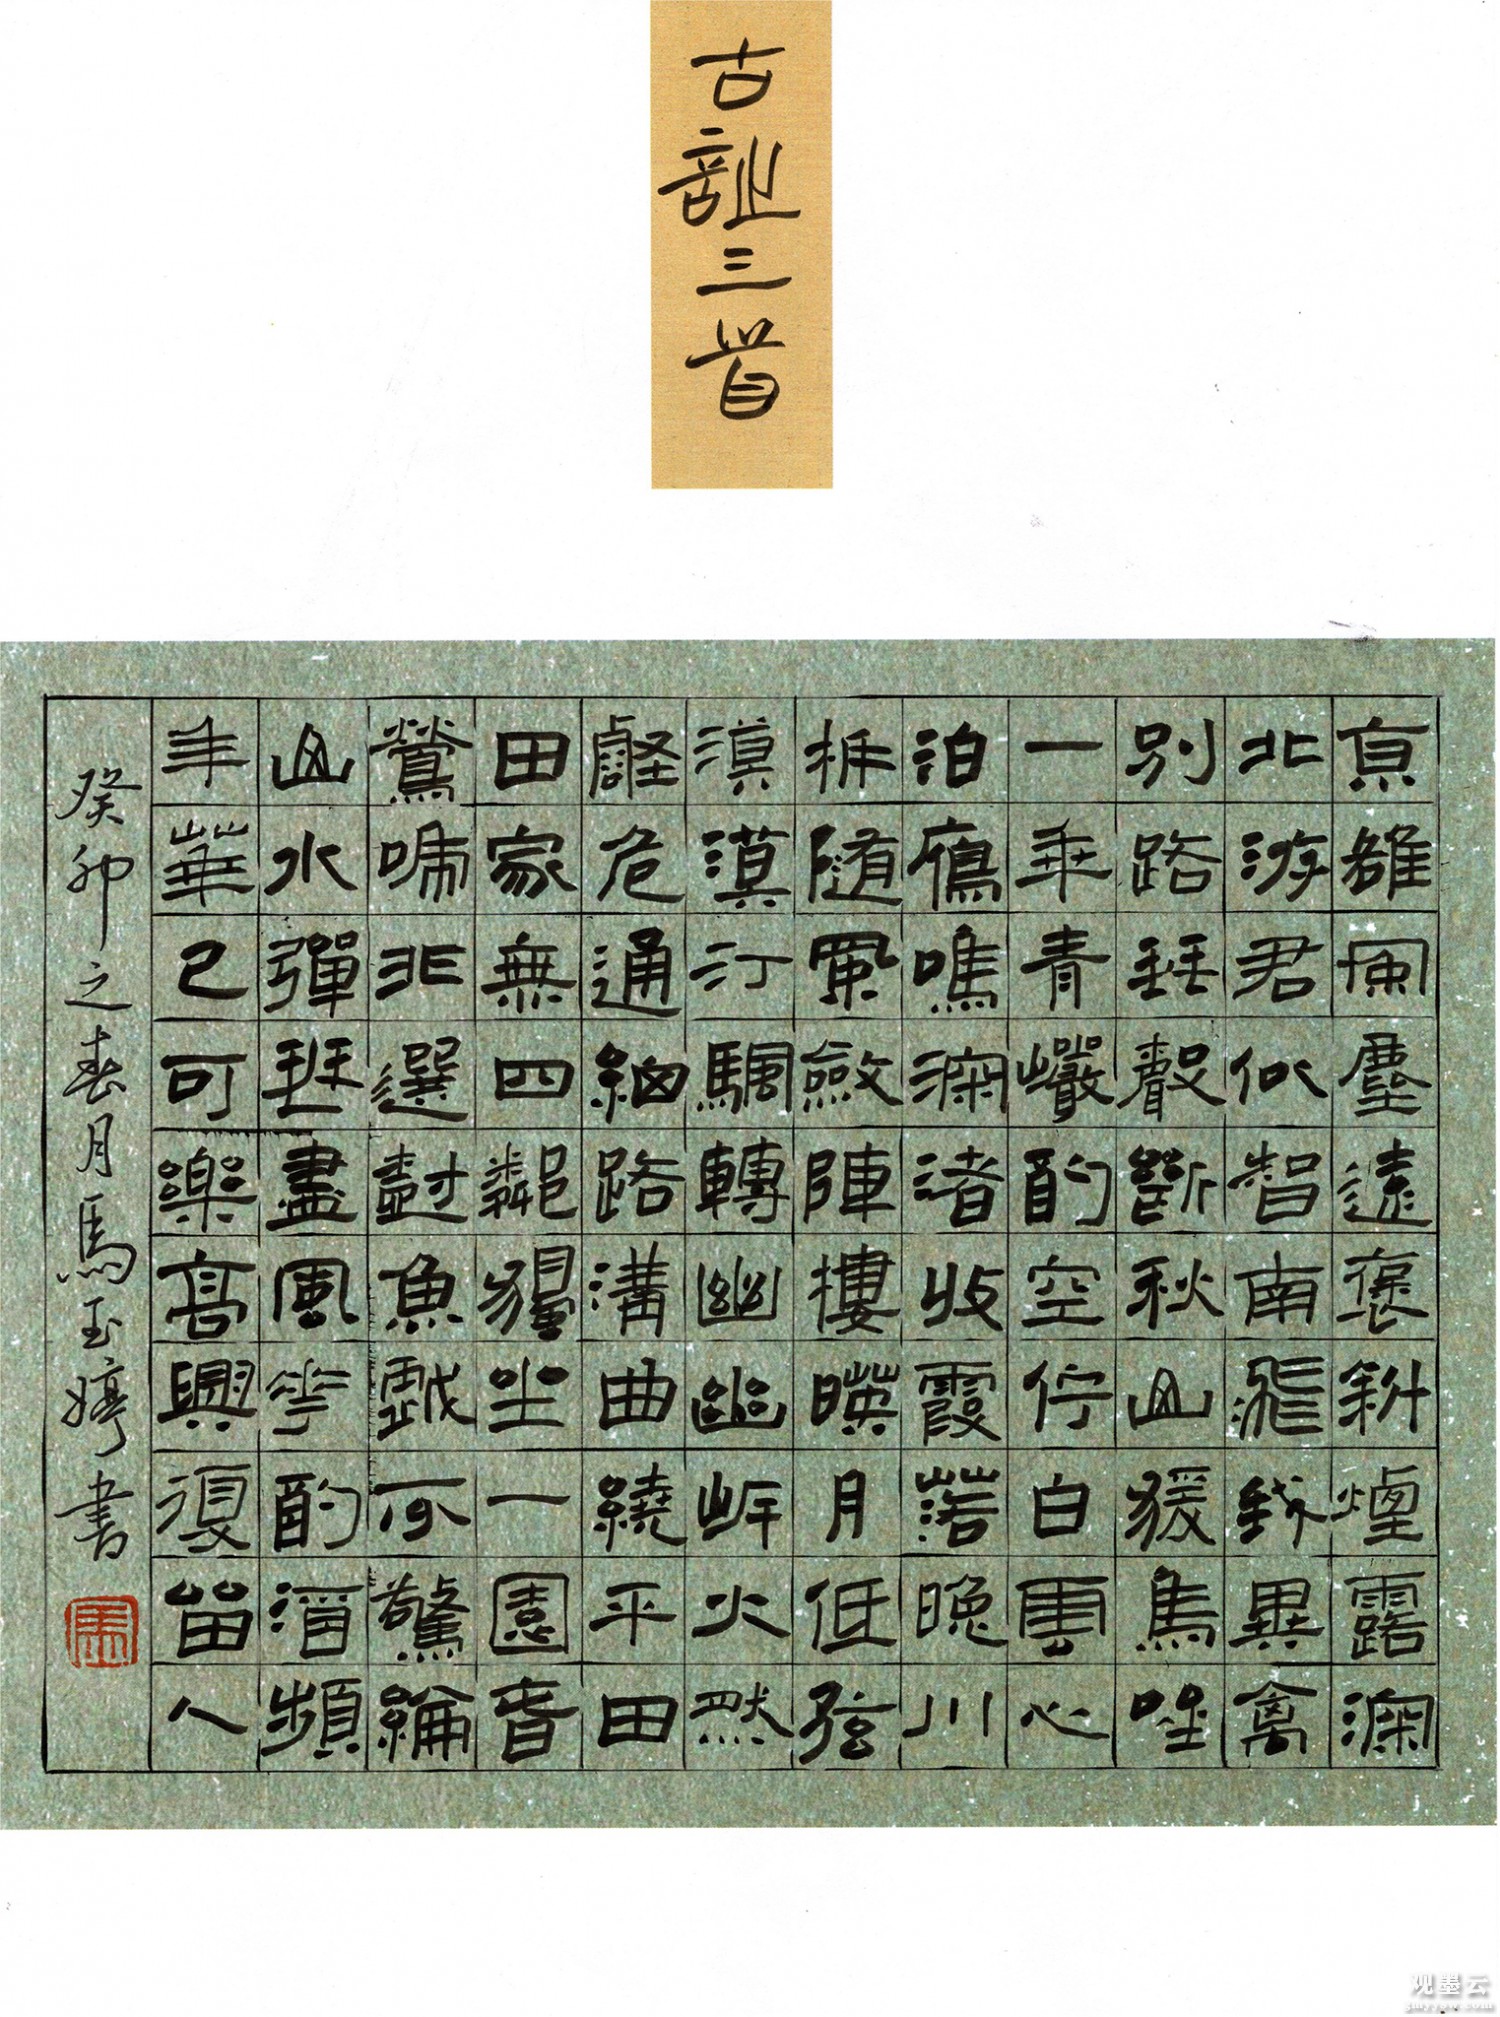 古詩三首
京雒風塵遠褒斜煙露深
北游君似智南飛我異禽
別路琴聲斷秋山猨鳥吟
一乘青巖酌空佇白雲心
泊鴈鳴深渚收霞落晚川
柝隨風斂陣樓映月低弦
漠漠汀颿轉幽幽岸火然
壑危通細路溝曲繞平田
田家無四鄰獨坐一園春
鶯啼非選樹魚戲不驚綸
山水彈琴盡風花酌酒頻
年華已可樂高興復留人
癸卯之春月馬玉婷書
观墨云
gmyyun.com